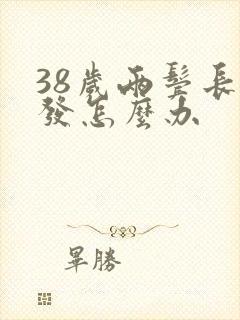 38歲兩鬢長
發怎麼办
畢勝